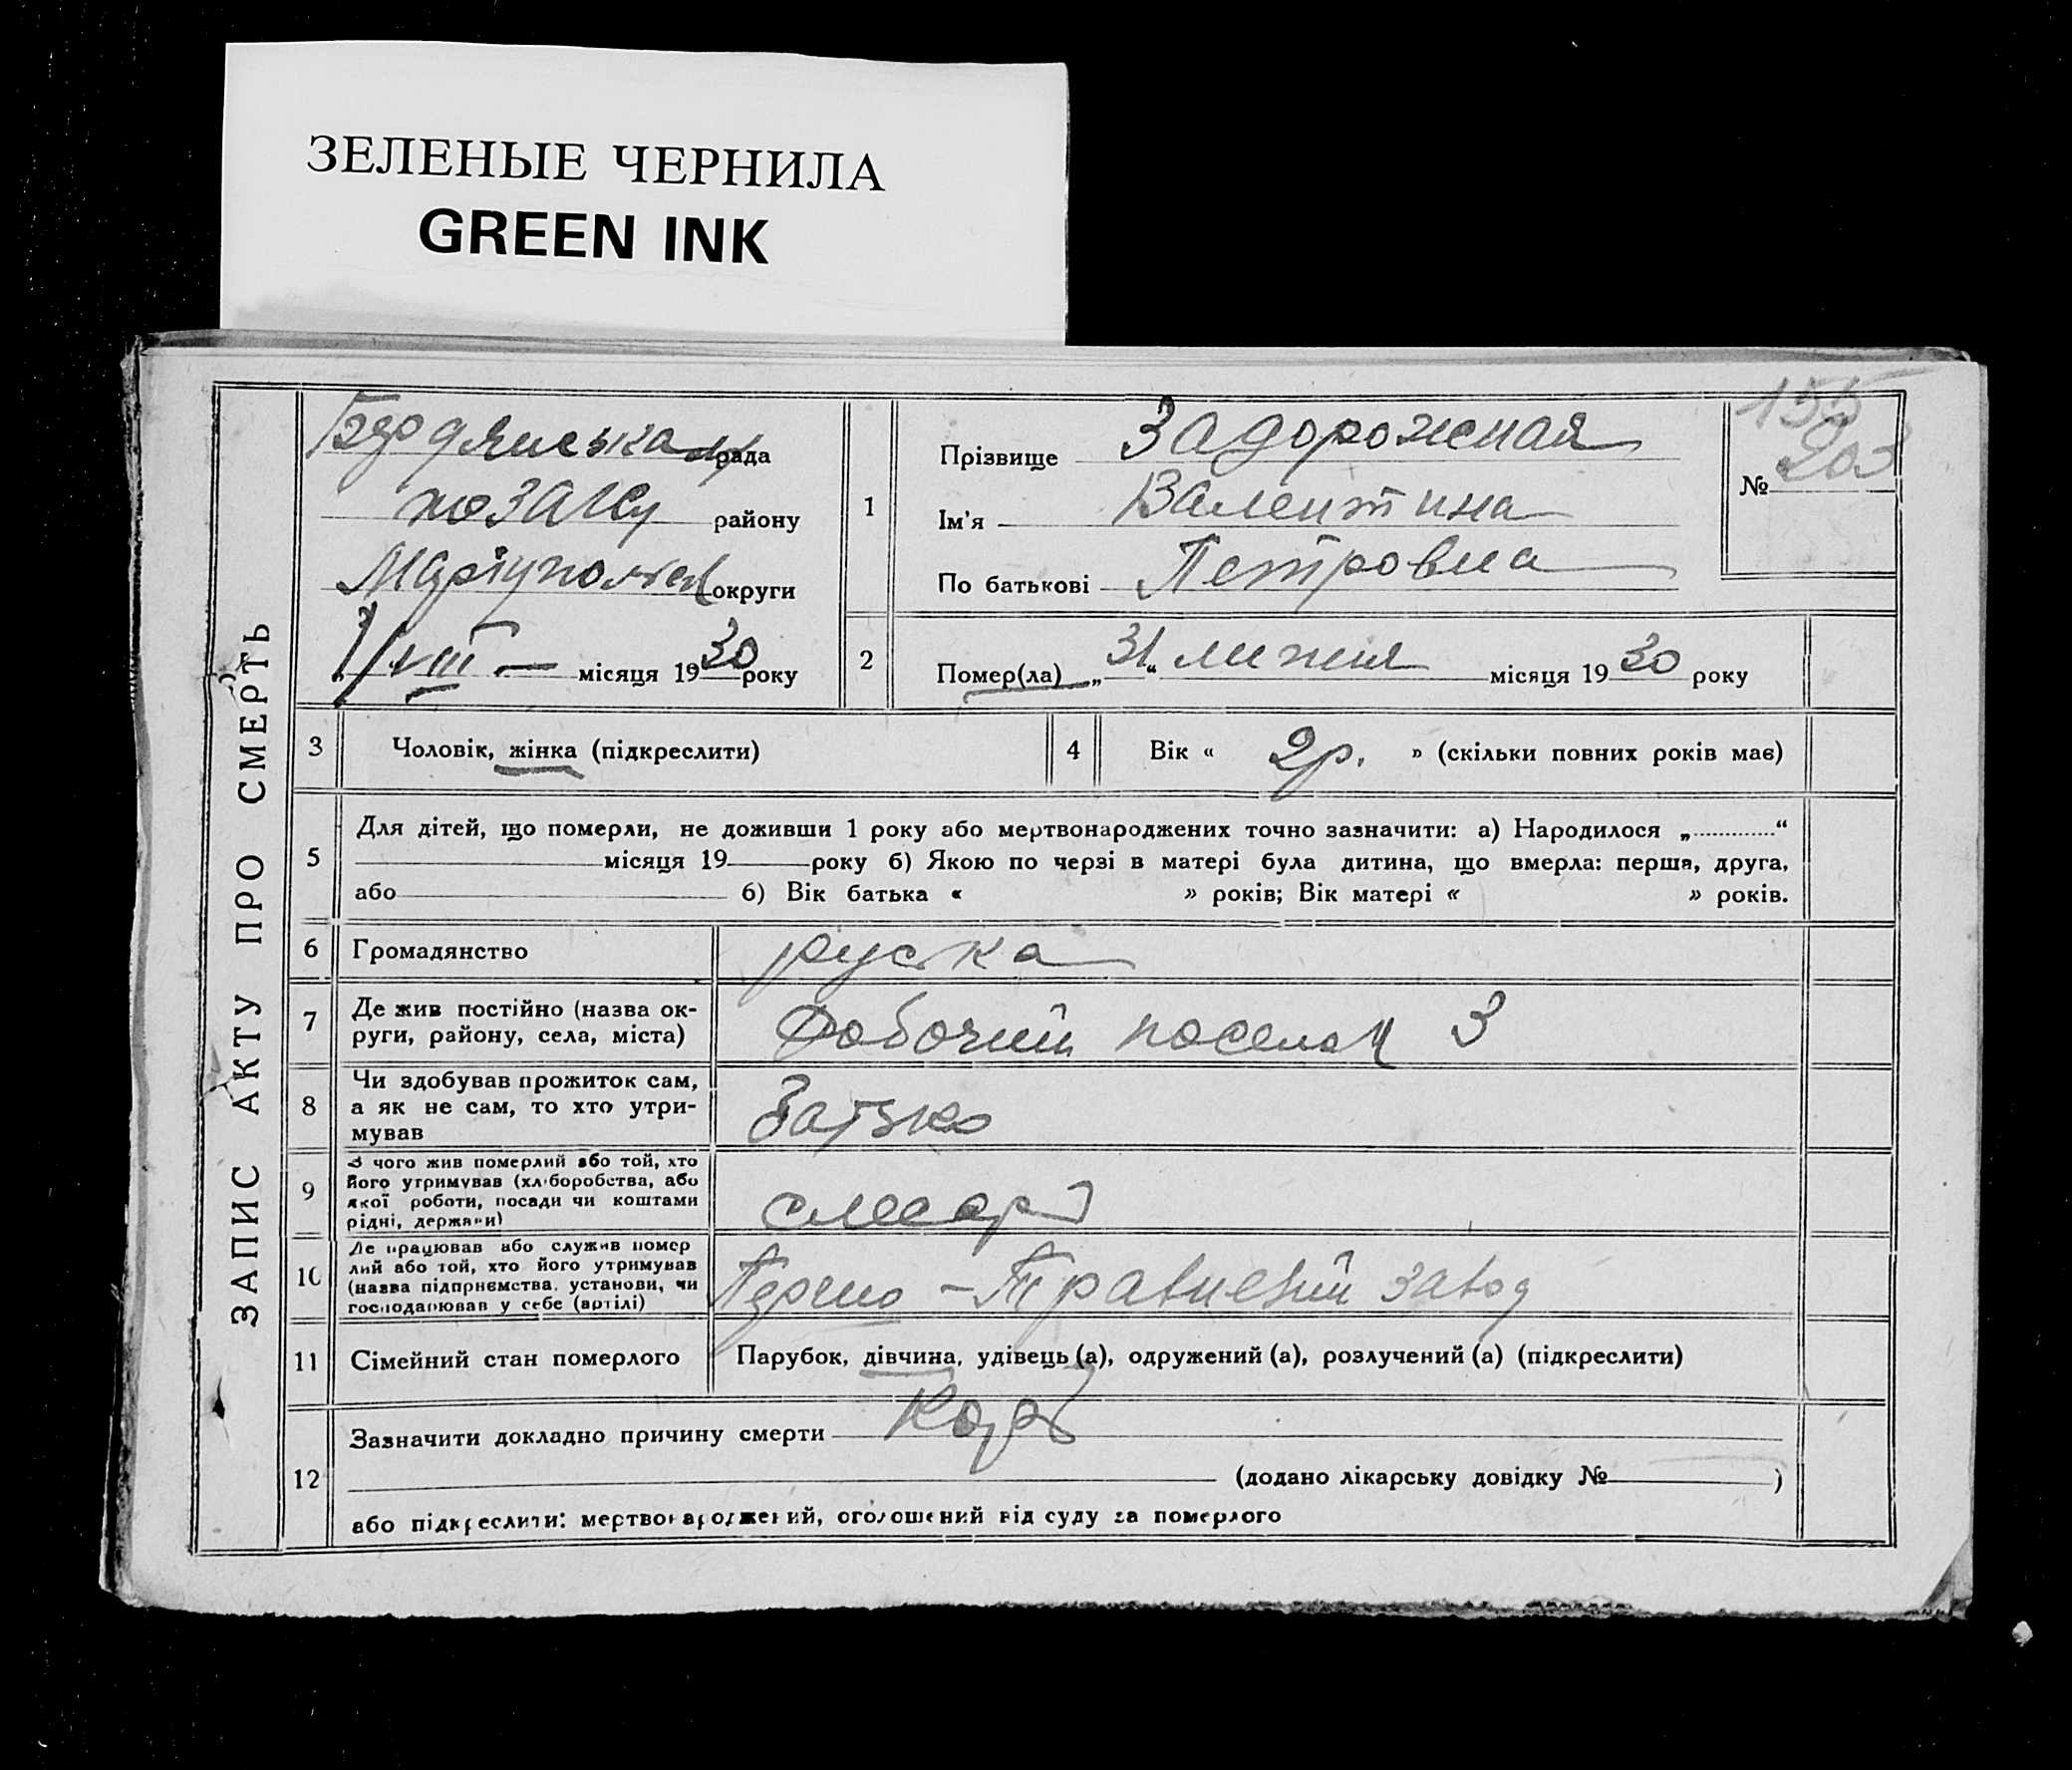 ЗЕЛЕНЫЕ ЧЕРНИЛА
GREEN INK
ЗАПИС АКТУ ПРО СМЕРТЬ
Бердянська рада
району
округи
VIII місяця 1930 року
1
Прізвище Задорожная
Ім'я Валентина
По батькові Петровна
155
№ 203
2
Помер(ла) „31“ липня місяця 1930 року
3 Чоловік, жінка (підкреслити)
4 Вік « 2р. » (скільки повних років має)
5
Для дітей, що померли, не доживши 1 року або мертвонароджених точно зазначити: а) Народилося „ “
місяця 19 року б) Якою по черзі в матері була дитина, що вмерла: перша, друга,
або б) Вік батька « » років; Вік матері « » років.
6 Громадянство руска
7 Де жив постійно (назва ок-
руги, району, села, міста) Робочий поселок 3
8 Чи здобував прожиток сам,
а як не сам, то хто утри-
мував Батько
9 З чого жив померлий або той, хто
його утримував (хліборобства, або
якої роботи, посади чи коштами
рідні, держави) слесарь
10 Де працював або служив помер
лий або той, хто його утримував
(назва підприємства, установи, чи
господарював у себе (артілі) завод
11 Сімейний стан померлого Парубок, дівчина, удівець (а), одружений (а), розлучений (а) (підкреслити)
12
Зазначити докладно причину смерти Корь
(додано лікарську довідку № )
або підкреслити: мертвонароджений, оголошений від суду за померлого